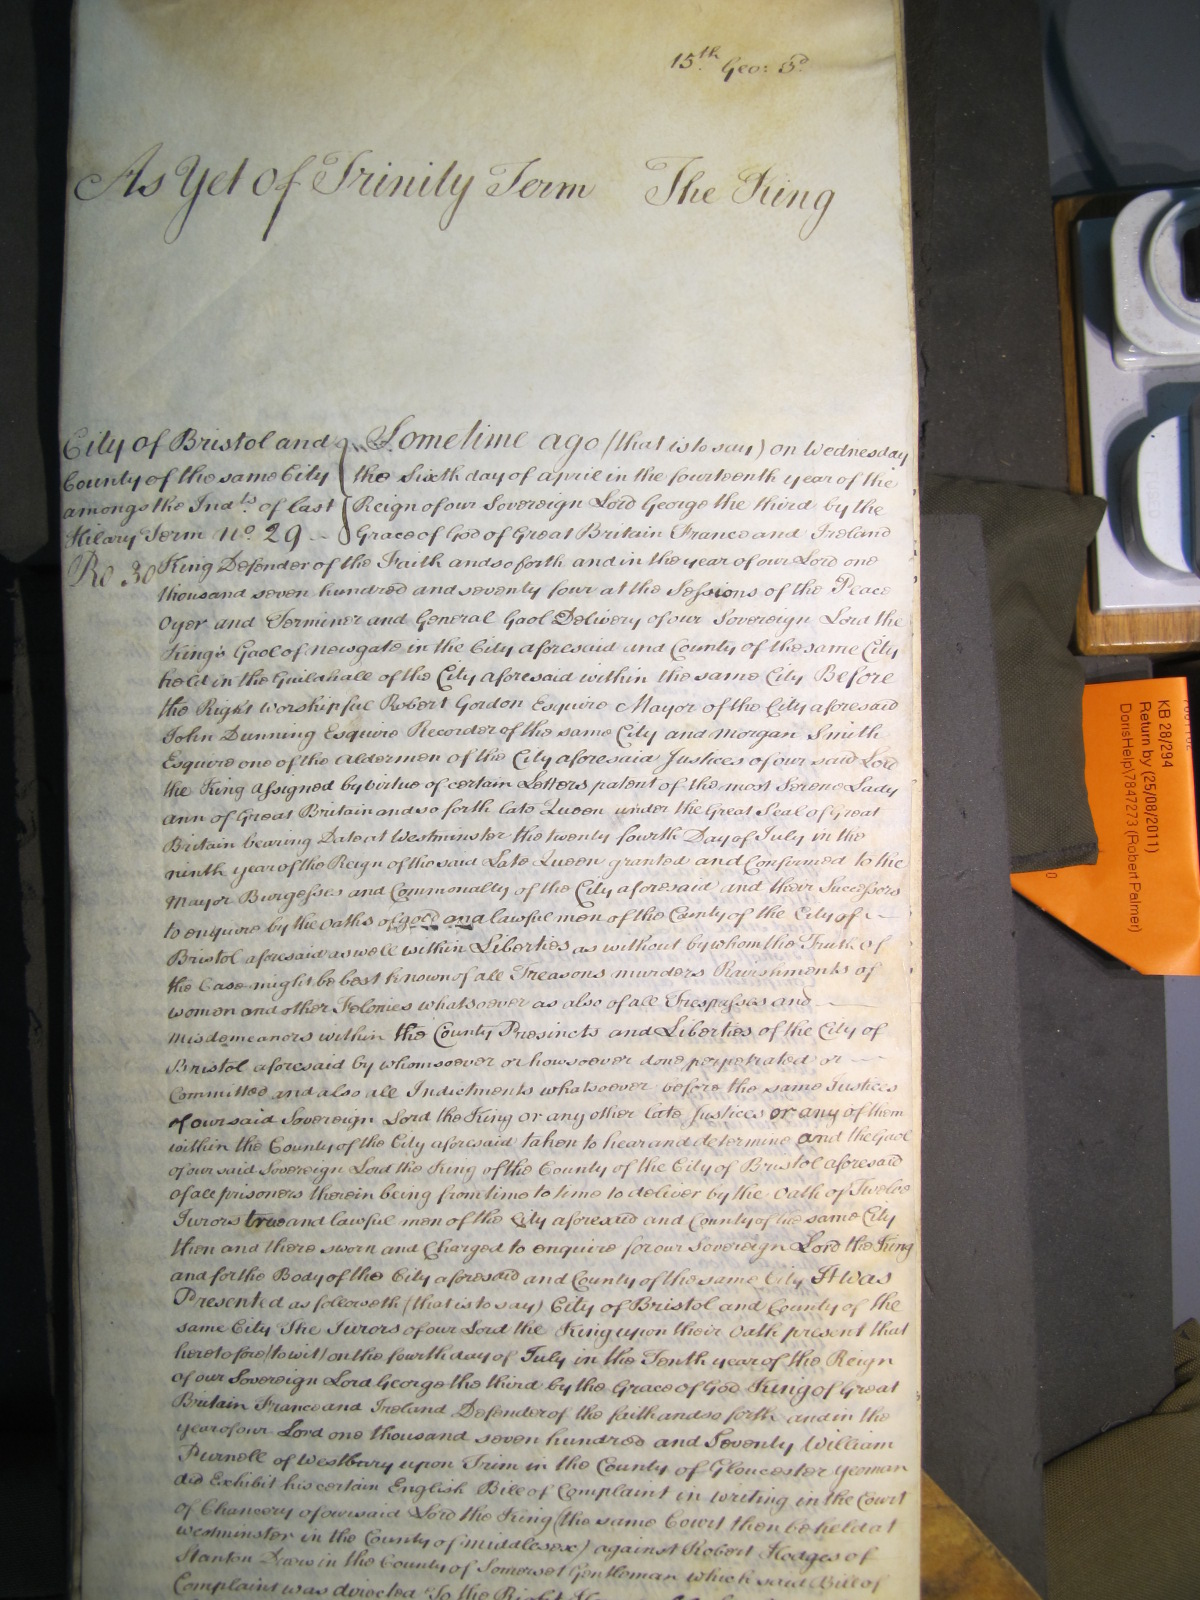 15th Geo: 3d
As Yet Of Trinity Term The King
City of Bristol and
County of the same City
amongst the Indts of last
Hilary Term No. 29
Ro 30
Sometime ago (that is to say) on Wednesday
the Sixth day of april in the fourteenth year of the
Reign of our Sovereign Lord George the third by the
Grace of God of Great Britain France and Ireland
King Defender of the Faith and so forth and in the year of our Lord one
thousand seven hundred and seventy four at the Sessions of the Peace
Oyer and Terminer and General Gaol Delivery of our Sovereign Lord the
King's Gaol of Newgate in the City aforesaid and County of the same City
held in the Guildhall of the City aforesaid within the same City Before
the Right Worshipful Robert Gordon Esquire Mayor of the City aforesaid
John Dunning Esquire Recorder of the same City and Morgan Smith
Esquire one of the Aldermen of the City aforesaid Justices of our said Lord
the King assigned by virtue of certain Letters patent of the most Serene Lady
ann of Great Britain and so forth late Queen under the Great Seal of Great
Britain bearing Date at Westminster the twenty fourth Day of July in the
ninth year of the Reign of the said Late Queen granted and Confirmed to the
Mayor Burgesses and Commonalty of the City aforesaid and their Successors
to enquire by the oaths of good and lawful men of the County of the City of
Bristol aforesaid as well within Liberties as without by whom the Truth of
the Case might be best known of all Treasons murders Ravishments of
women and other Felonies whatsoever as also of all Trespasses and
misdemeanors within the County Precincts and Liberties of the City of
Bristol aforesaid by whomsoever or howsoever done perpetrated or
Committed and also all Indictments whatsoever before the same Justices
of our said Sovereign Lord the King or any other late Justices or any of them
within the County of the City aforesaid taken to hear and determine and the Gaol
of our said Sovereign Lord the King of the County of the City of Bristol aforesaid
of all prisoners therein being from time to time to deliver by the Oath of Twelve
Jurors true and lawful men of the City aforesaid and County of the same City
then and there sworn and Charged to enquire for our Sovereign Lord the King
and for the Body of the City aforesaid and County of the same City It was
Presented as followeth (that is to say) City of Bristol and County of the
same City The Jurors of our Lord the King upon their Oath present that
heretofore (to wit) on the fourth day of July in the Tenth year of the Reign
of our Sovereign Lord George the third by the Grace of God King of Great
Britain France and Ireland Defender of the faith and so forth and in the
year of our Lord one thousand seven hundred and Seventy William
Purnell of Westbury upon Trim in the County of Gloucester yeoman
did Exhibit his certain English Bill of Complaint in writing in the Court
of Chancery of our said Lord the King (the same Court then be held at
Westminster in the County of Middlesex) against Robert Hodges of
Stanton Drew in the County of Somerset Gentleman which said Bill of
Complaint was directed To the Right
KB 28/294
Return by (25/08/2011)
DorisHelp\7847273 (Robert Palmer)